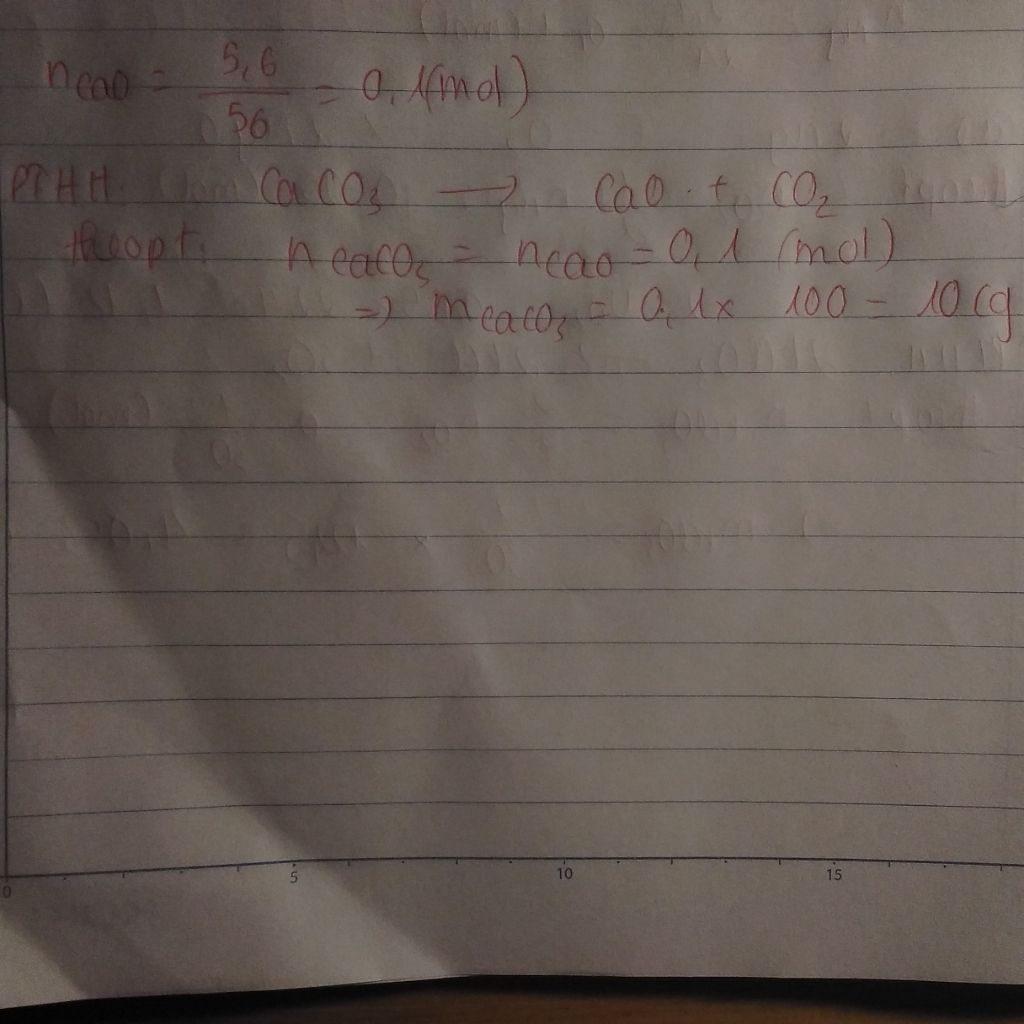 nCaO = 5,6 / 56 = 0,1(mol)
PTHH CaCO₃ → CaO + CO₂
theo pt: nCaCO₃ = nCaO = 0,1 (mol)
=> mCaCO₃ = 0,1 x 100 = 10 (g
0 5 10 15